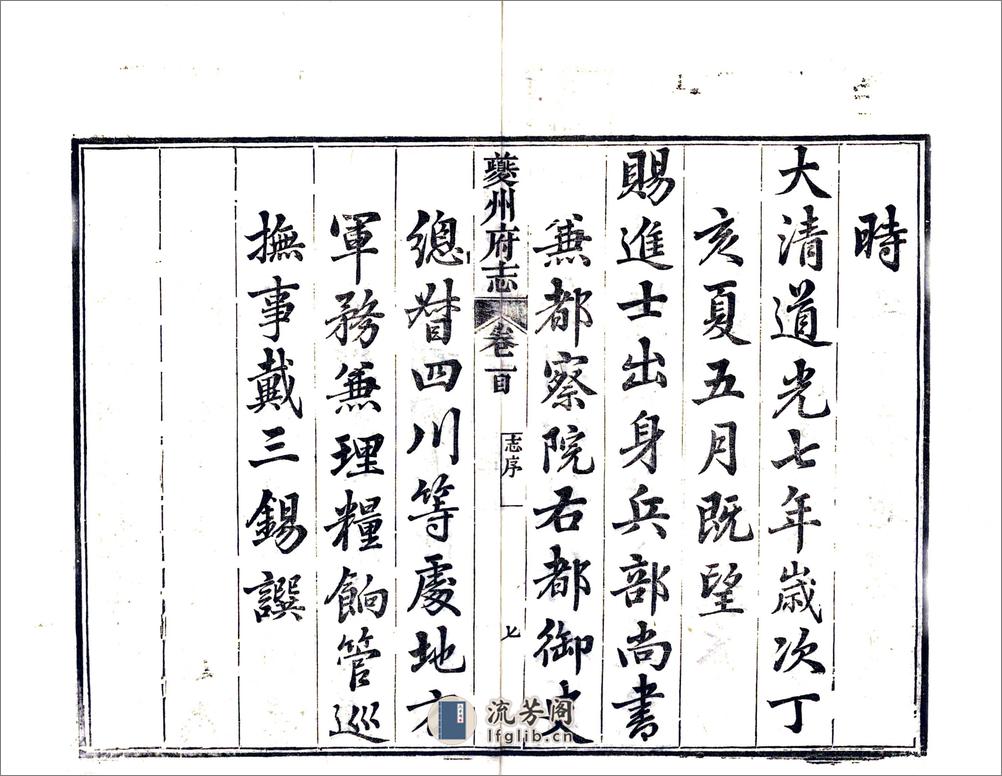 時
大清道光七年歲次丁
亥夏五月既望
賜進士出身兵部尚書
兼都察院右都御史
夔州府志 卷首目 志序 七
總督四川等處地方
軍務兼理糧餉管巡
撫事戴三錫譔
流芳阁
lfglib.cn